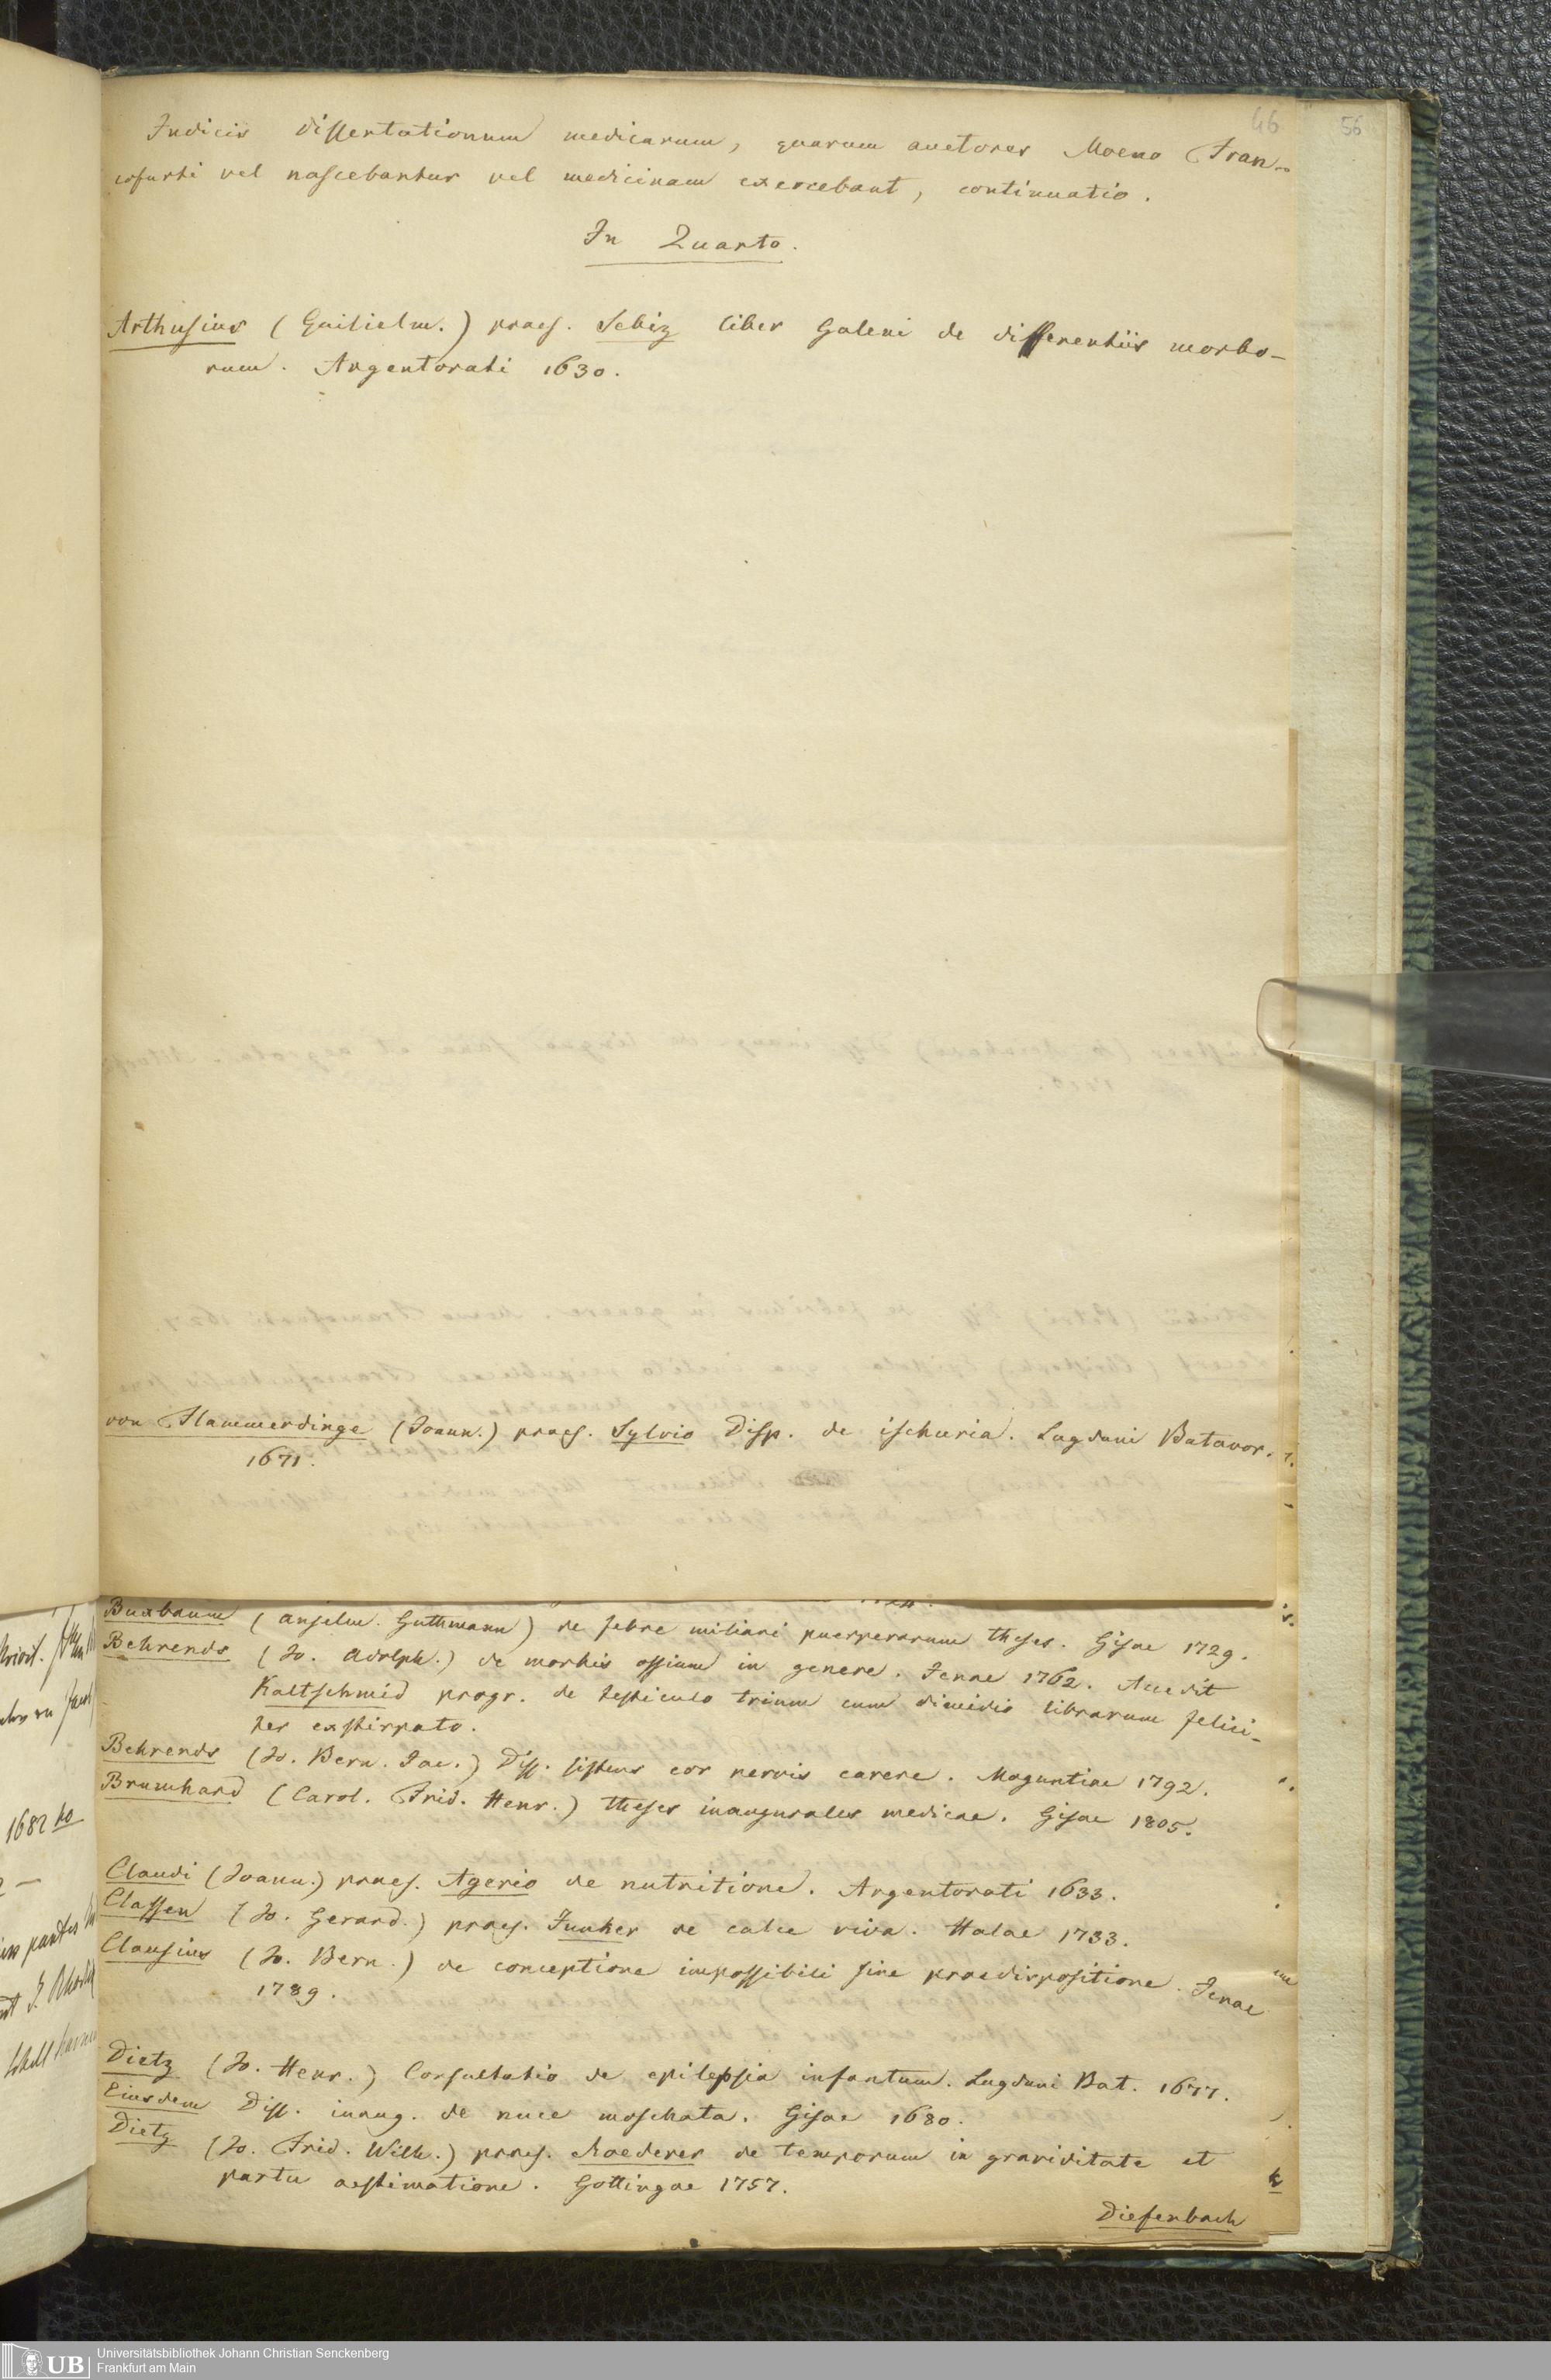 46
56
Indicis dissertationum medicarum, quarum auctores Moeno Fran-
cofurti vel nascebantur vel medicinam exercebant, continuatio.
In Quarto.
Arthusius (Guilielm.) praes. Sebiz liber Galeni de differentiis morbo-
rum. Argentorati 1630.
von Flammerdinge (Joann.) praes. Sylvio Disp. de ischuria. Lugduni Batavor.
1671.
Buxbaum (Anselm. Guthmann) de febre miliari puerperarum theses. Gisae 1729.
Behrends (Jo. Adolph.) de morbis ossium in genere. Jenae 1762. Accedit
Kaltschmid progr. de testiculo trium cum dimidio librarum felici-
ter exstirpato.
Behrends (Jo. Bern. Jac.) Diss. sistens cor nervis carere. Moguntiae 1792.
Brumhard (Carol. Frid. Henr.) theses inaugurales medicae. Gisae 1805.
Claudi (Joann.) praes. Agerio de nutritione. Argentorati 1633.
Classen (Jo. Gerard.) praes. Junker de calce viva. Halae 1733.
Clausius (Jo. Bern.) de conceptione impossibili sine praedispositione. Jenae
1789.
Dietz (Jo. Henr.) Consultatio de epilepsia infantum. Lugduni Bat. 1677.
Eiusdem Diss. inaug. de nuce moschata. Gisae 1680.
Dietz (Jo. Frid. Wilh.) praes. Roederer de temporum in graviditate et
partu aestimatione. Gottingae 1757.
Diefenbach
1682
UB
Universitätsbibliothek Johann Christian Senckenberg
Frankfurt am Main